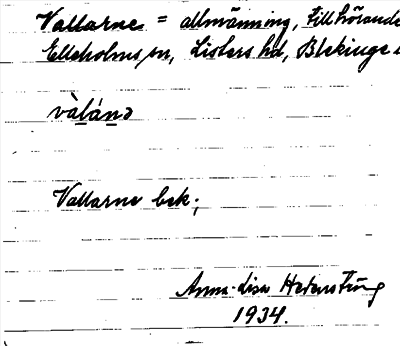 Vallarne = allmänning, tillhörande
Elleholms sn, Listers hd, Blekinge
vàlánə
Vallarne bek.;
Anna-Lisa
1934.